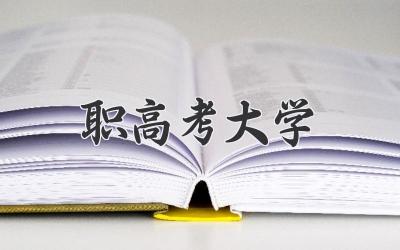 职高考大学